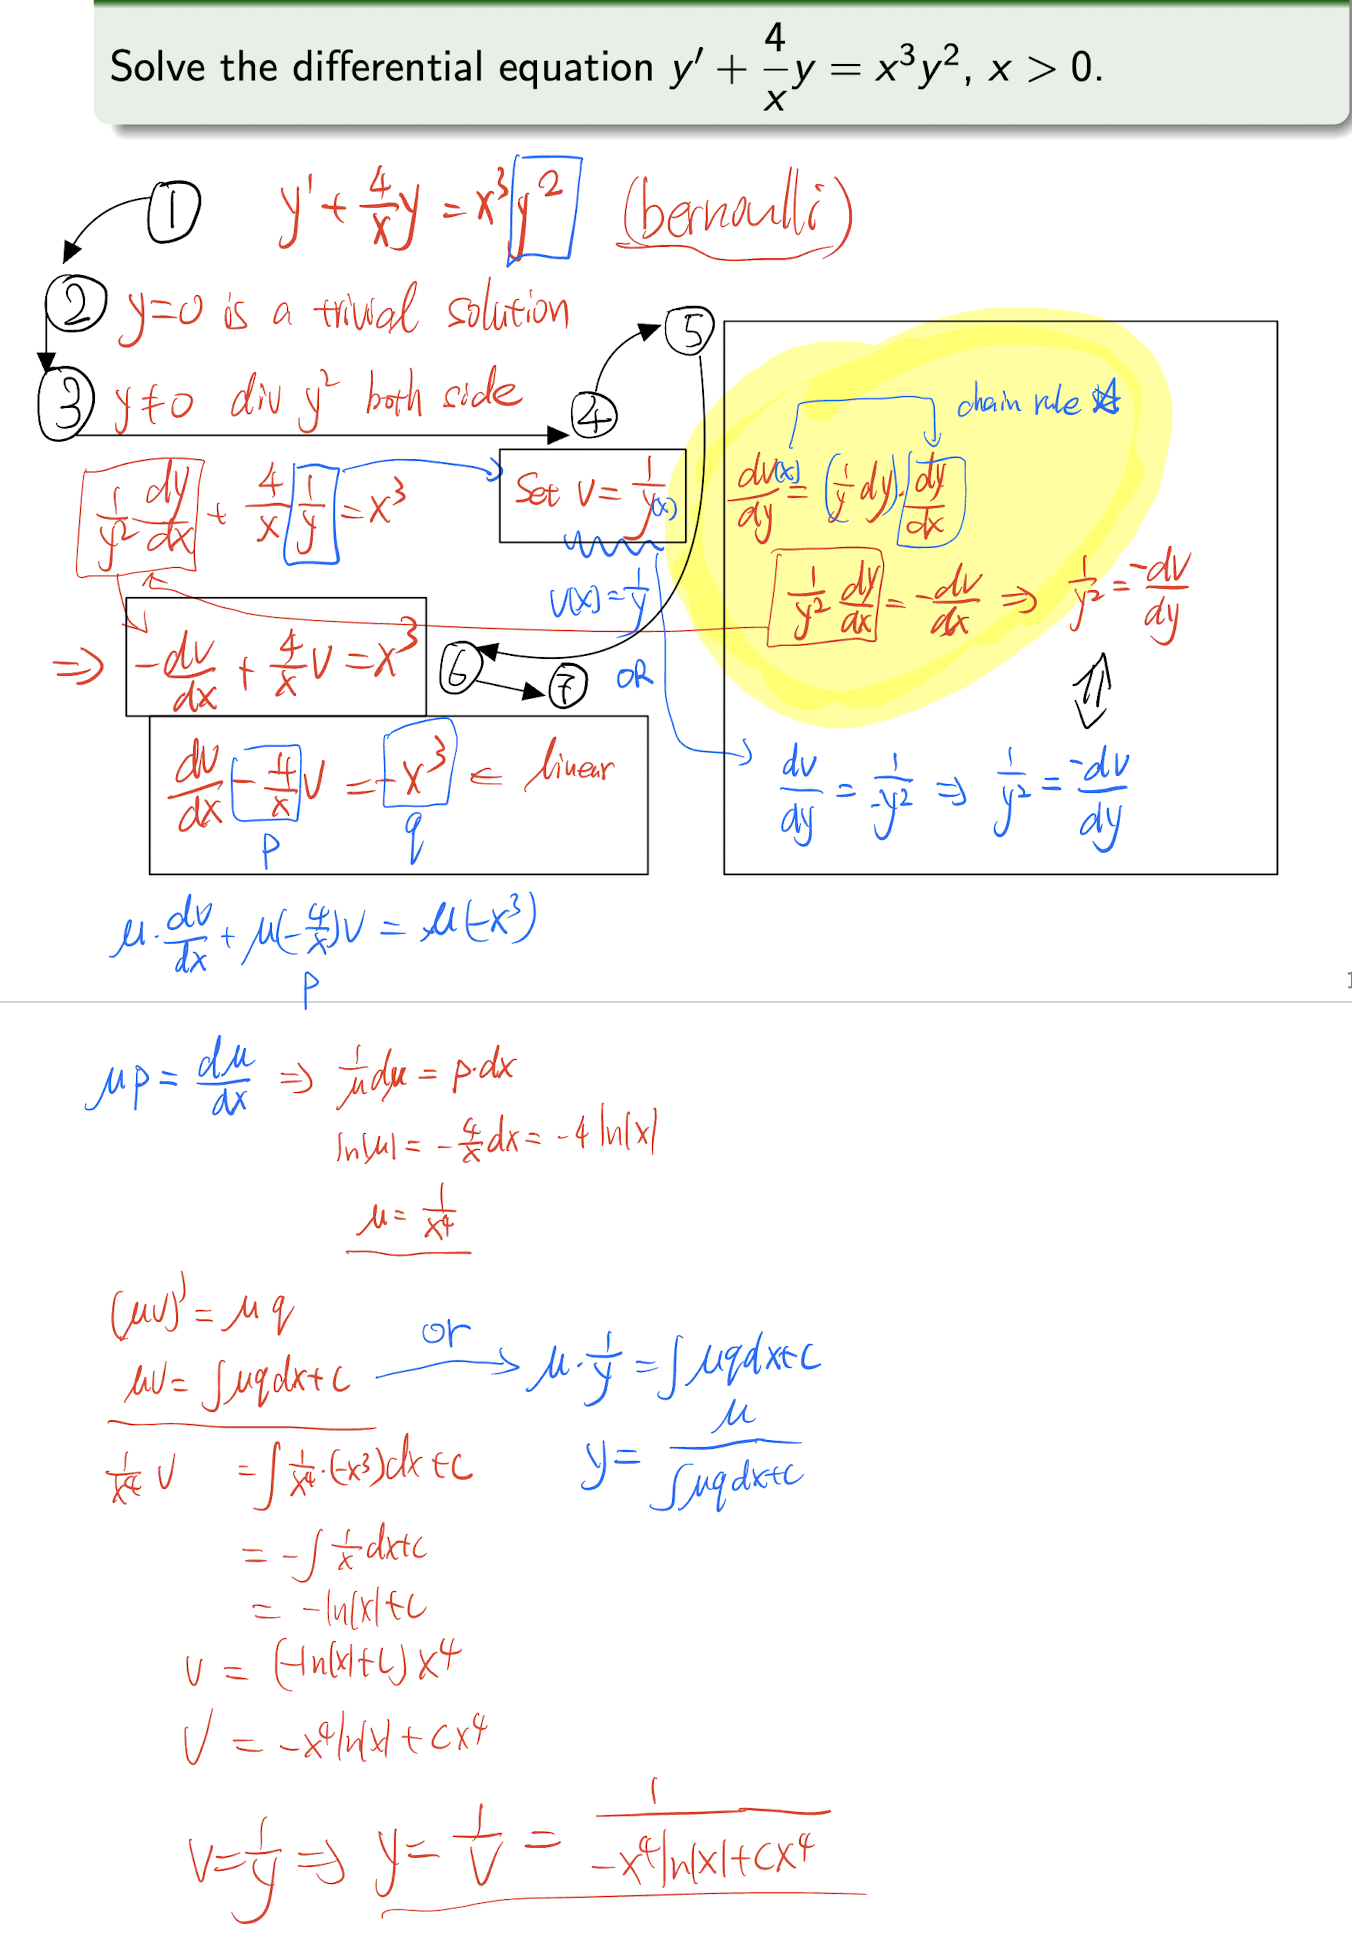 Solve the differential equation y′ + 4/x y = x³y², x > 0.
① y' + 4/x y = x³y² (bernoulli)
② y=0 is a trivial solution
③ y≠0 div y² both side
④
⑤
1/y² dy/dx + 4/x 1/y = x³
Set v = 1/y(x)
v(x) = 1/y
OR
chain rule
dv(x)/dy = (1/y dy)·dy/dx
1/y² dy/dx = -dv/dx ⇒ 1/y² = -dv/dy
⇒ -dv/dx + 4/x v = x³
⑥
⑦
dv/dx - 4/x v = -x³ ⇐ linear
p
q
dv/dy = 1/-y² ⇒ 1/y² = -dv/dy
μ·dv/dx + μ(-4/x)v = μ(-x³)
p
1
μp = dμ/dx ⇒ 1/μ dμ = p·dx
ln|μ| = -4/x dx = -4 ln|x|
μ = 1/x⁴
(μv)' = μq
μv = ∫μq dx + c
or
μ·1/y = ∫μq dx + c
y = μ/∫μq dx + c
1/x⁴ v = ∫1/x⁴·(-x³)dx + c
= -∫1/x dx + c
= -ln|x| + c
v = (-ln|x| + c)x⁴
v = -x⁴ln|x| + cx⁴
v = 1/y ⇒ y = 1/v = 1/-x⁴ln|x| + cx⁴